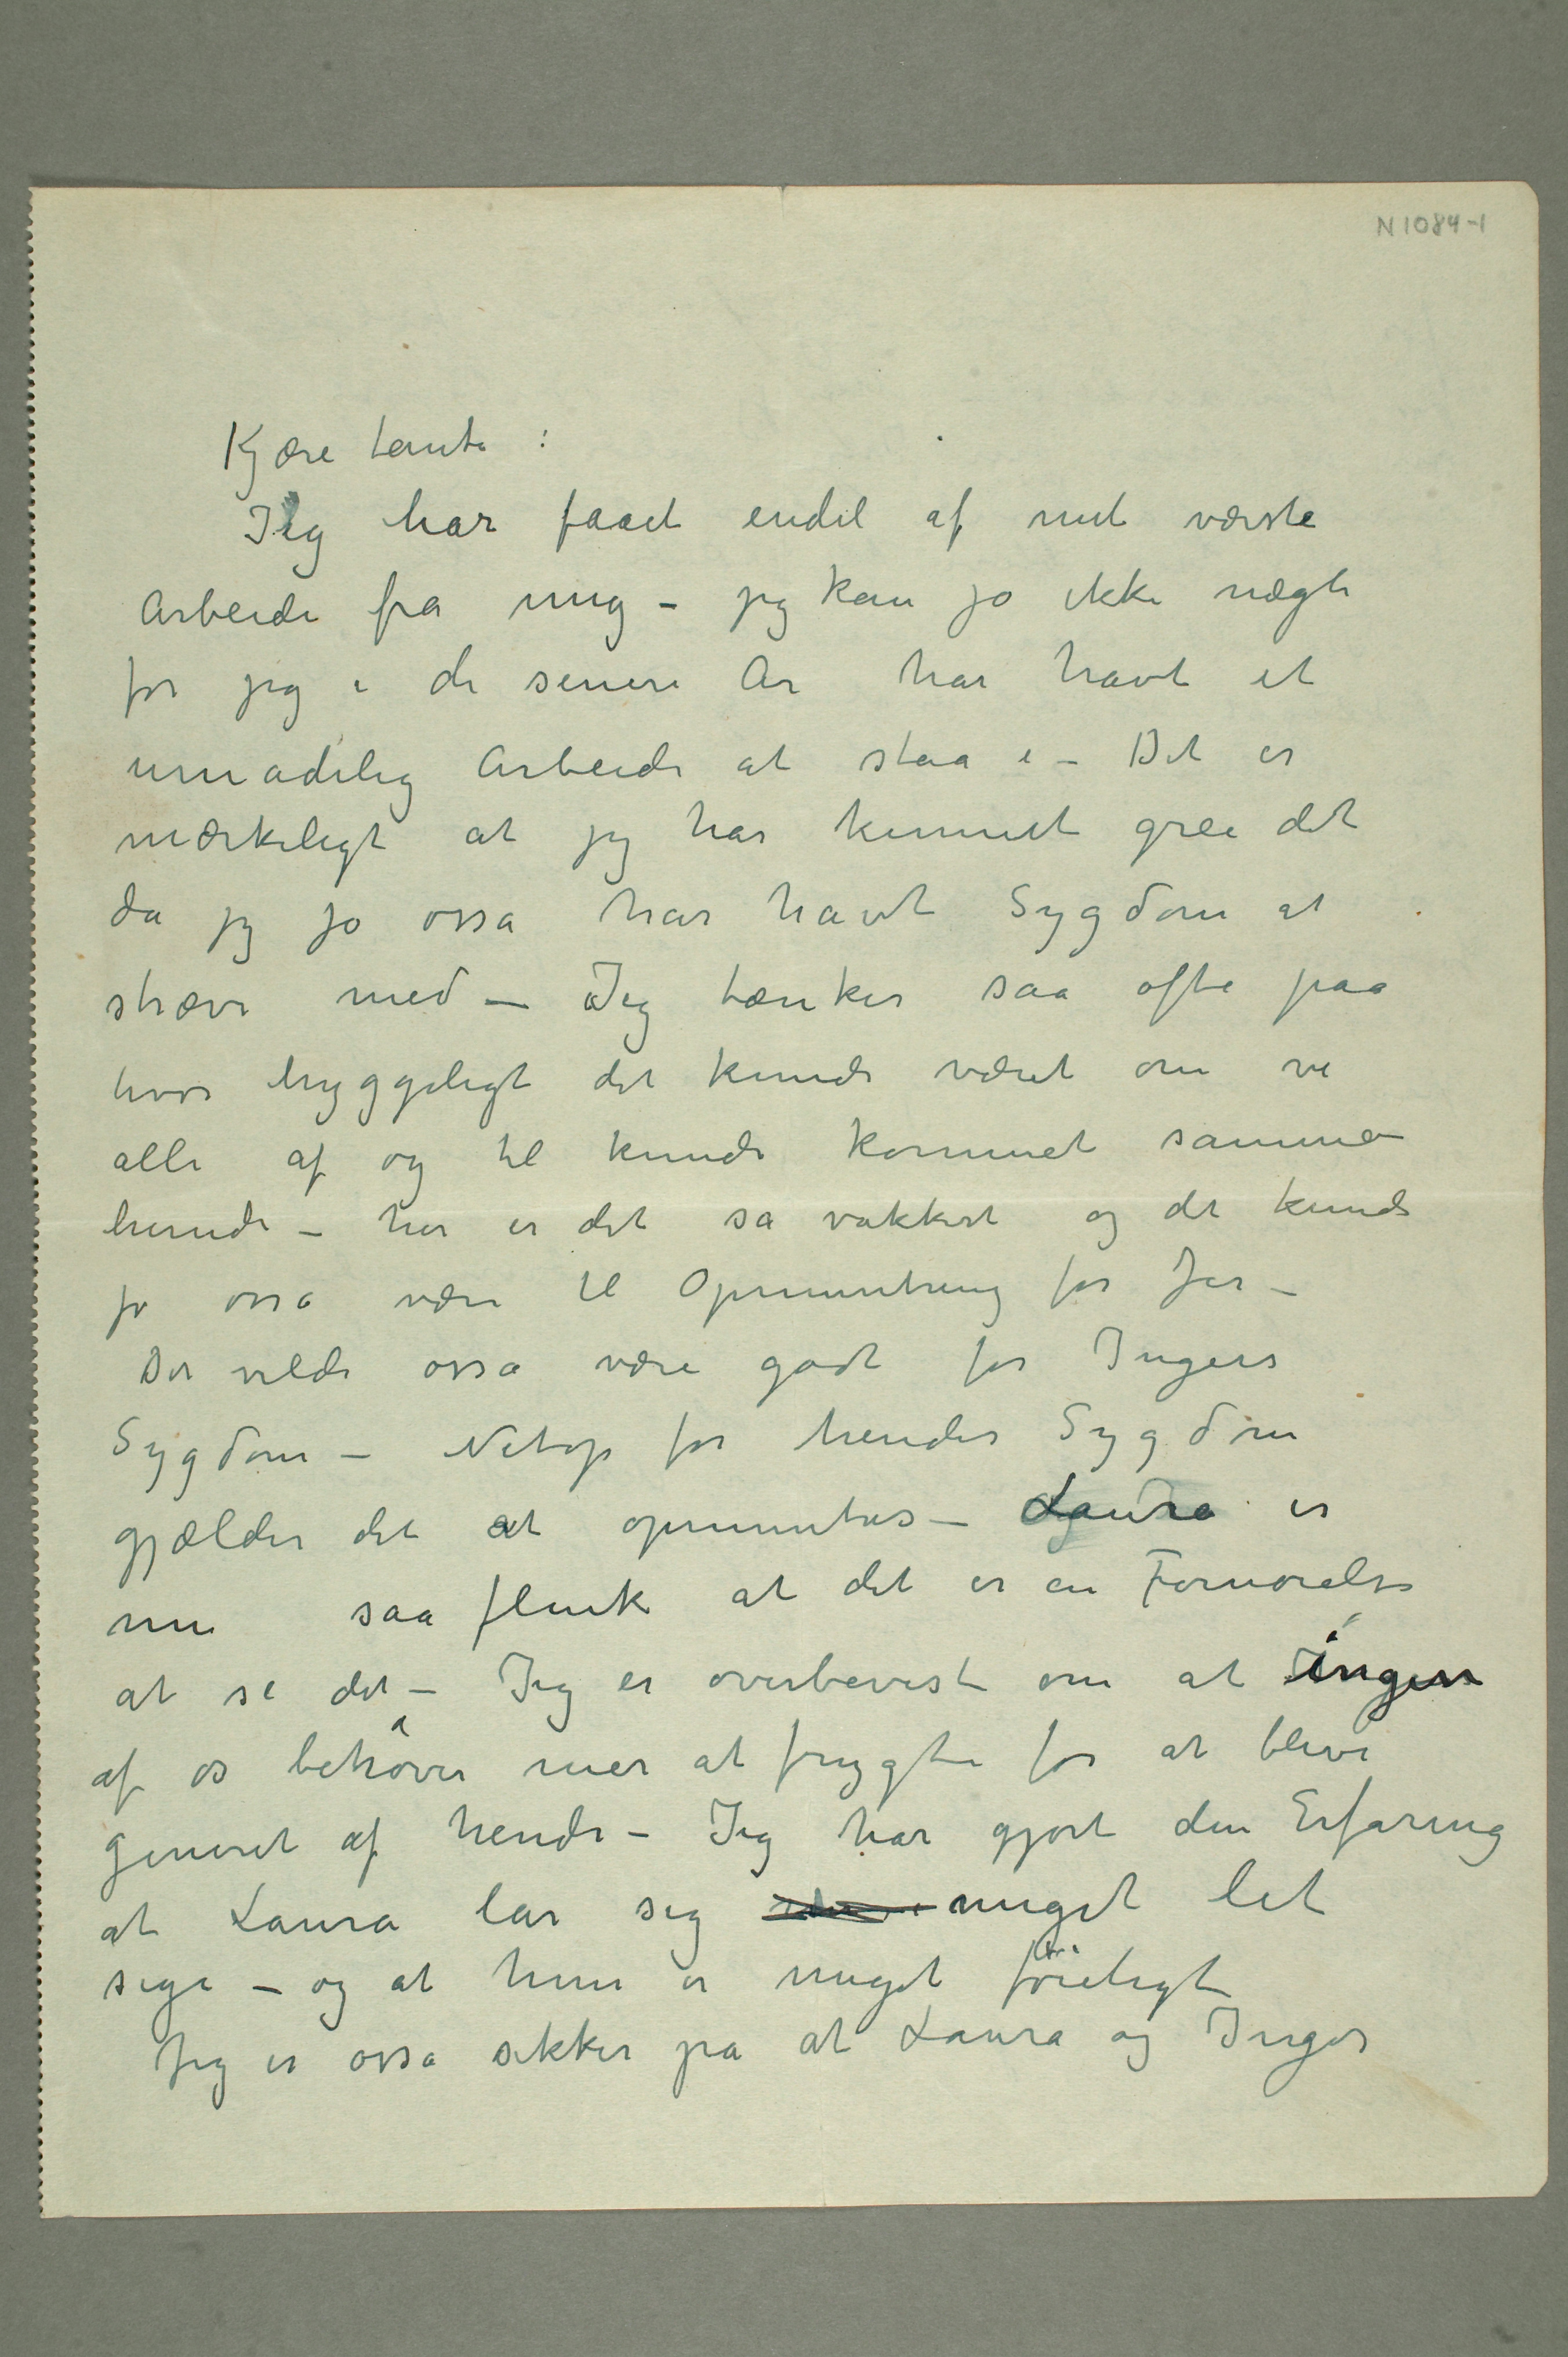 N 1084-1
Kjære tante :
Jeg har faaet endel af mit værste
Arbeide fra mig – jeg kan jo ikke nægte
for jeg i de senere Ar har havt et
umadelig Arbeide at staa i – Det er
mærkeligt at jeg har kunnet gree det
da jeg jo ossa har havt Sygdom at
stræve med – Jeg tænker saa ofte paa
hvor hyggeligt det kunde været om vi
alle af og til kunde kommet sammen
hernede – her er det sa vakkert og det kunde
jo ossa være til Opmuntring for Jer –
Det vilde ossa være godt for Ingers
Sygdom – Netop for hendes Sygdom
gjælder det at opmuntres – Laura er
nu saa flink at det er en Fornøielse
at se det – Jeg er overbevist om at ingen
af os behøver mer at frygte for at blive
generet af hende – Jeg har gjort den Erfaring
at Laura lar sig meget let
sige – og at hun er meget føieligt
Jeg er ossa sikker pa at Laura og Inger